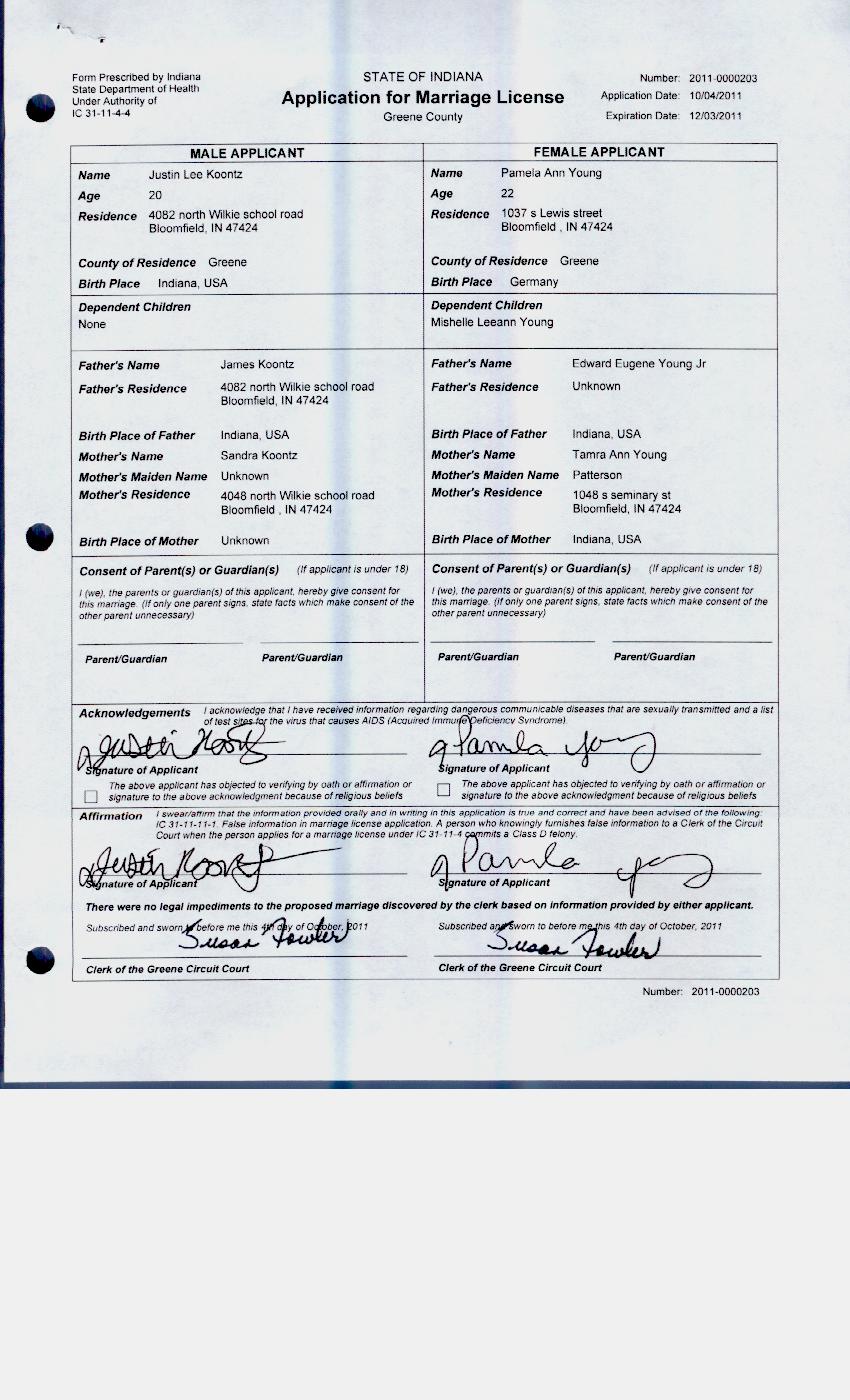 Form Prescribed by Indiana
State Department of Health
Under Authority of
IC 31-11-4-4
STATE OF INDIANA
Application for Marriage License
Greene County
Number: 2011-0000203
Application Date: 10/04/2011
Expiration Date: 12/03/2011
MALE APPLICANT
Name Justin Lee Koontz
Age 20
Residence 4082 north Wilkie school road
Bloomfield, IN 47424
County of Residence Greene
Birth Place Indiana, USA
Dependent Children
None
Father's Name James Koontz
Father's Residence 4082 north Wilkie school road
Bloomfield, IN 47424
Birth Place of Father Indiana, USA
Mother's Name Sandra Koontz
Mother's Maiden Name Unknown
Mother's Residence 4048 north Wilkie school road
Bloomfield , IN 47424
Birth Place of Mother Unknown
Consent of Parent(s) or Guardian(s) (If applicant is under 18)
I (we), the parents or guardian(s) of this applicant, hereby give consent for
this marriage. (If only one parent signs, state facts which make consent of the
other parent unnecessary)
Parent/Guardian Parent/Guardian
FEMALE APPLICANT
Name Pamela Ann Young
Age 22
Residence 1037 s Lewis street
Bloomfield , IN 47424
County of Residence Greene
Birth Place Germany
Dependent Children
Mishelle Leeann Young
Father's Name Edward Eugene Young Jr
Father's Residence Unknown
Birth Place of Father Indiana, USA
Mother's Name Tamra Ann Young
Mother's Maiden Name Patterson
Mother's Residence 1048 s seminary st
Bloomfield, IN 47424
Birth Place of Mother Indiana, USA
Consent of Parent(s) or Guardian(s) (If applicant is under 18)
I (we), the parents or guardian(s) of this applicant, hereby give consent for
this marriage. (if only one parent signs, state facts which make consent of the
other parent unnecessary)
Parent/Guardian Parent/Guardian
Acknowledgements I acknowledge that I have received information regarding dangerous communicable diseases that are sexually transmitted and a list
of test sites for the virus that causes AIDS (Acquired Immune Deficiency Syndrome).
Justin Koontz
Signature of Applicant
The above applicant has objected to verifying by oath or affirmation or
signature to the above acknowledgment because of religious beliefs
Pamla Young
Signature of Applicant
The above applicant has objected to verifying by oath or affirmation or
signature to the above acknowledgment because of religious beliefs
Affirmation I swear/affirm that the information provided orally and in writing in this application is true and correct and have been advised of the following:
IC 31-11-11-1. False information in marriage license application. A person who knowingly furnishes false information to a Clerk of the Circuit
Court when the person applies for a marriage license under IC 31-11-4 commits a Class D felony.
Justin Koontz
Signature of Applicant
Pamla Young
Signature of Applicant
There were no legal impediments to the proposed marriage discovered by the clerk based on information provided by either applicant.
Subscribed and sworn to before me this 4th day of October, 2011
Susan Fowler
Clerk of the Greene Circuit Court
Subscribed and sworn to before me this 4th day of October, 2011
Susan Fowler
Clerk of the Greene Circuit Court
Number: 2011-0000203